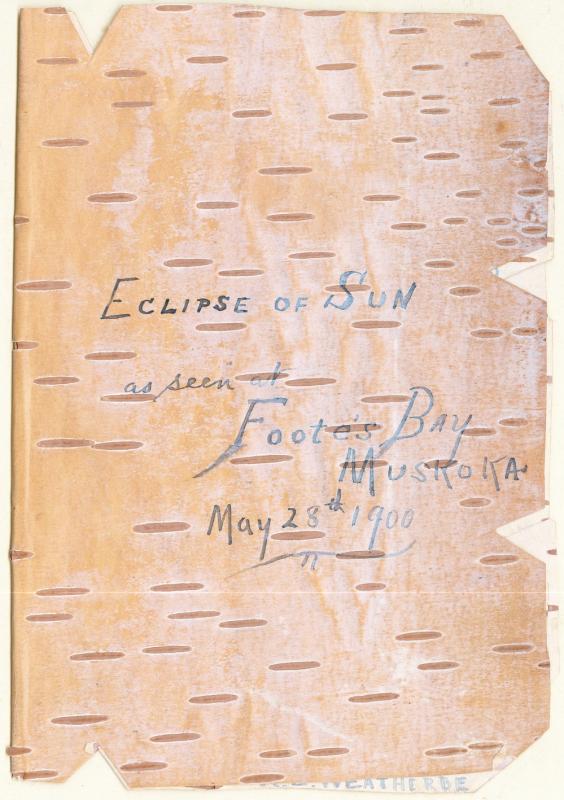 Eclipse of Sun
as seen at
Foote's Bay
Muskoka
May 28th 1900
Weatherbe